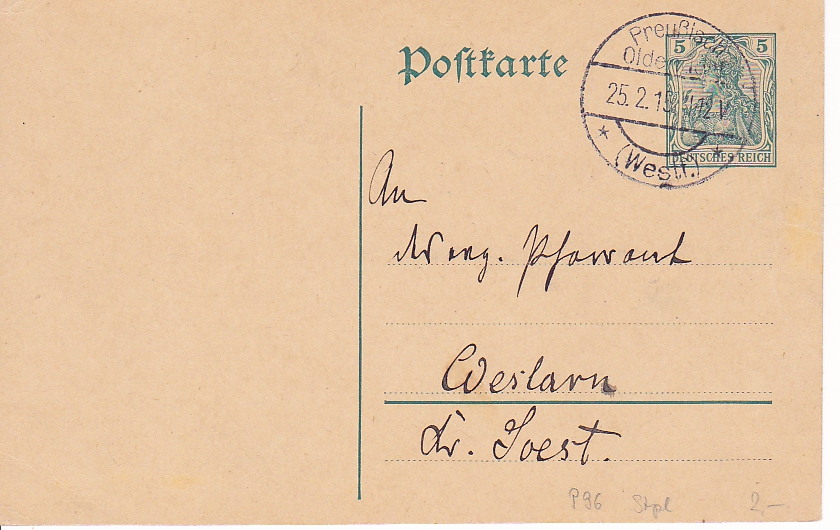 Postkarte
5 5
Preußisch
Olde
25.2.15. 11-12 V
(Westf.)
DEUTSCHES REICH
An
das evg. Pfarramt
Weslarn
Kr. Soest.
P96 Stpl 2,-